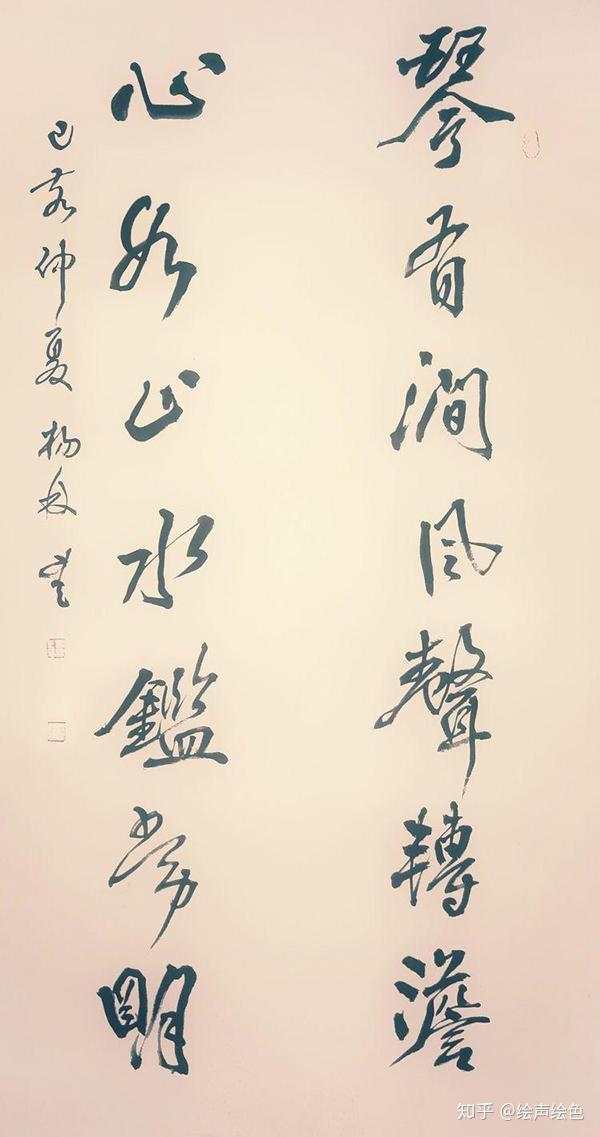 琴有澗風聲轉澹
心如止水鑑常明
己亥仲夏楊
知乎 @绘声绘色